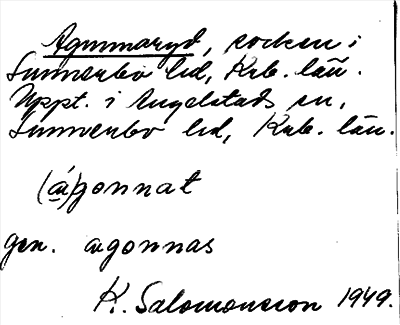 Agunnaryd, socken i
Sunnerbo hd, Krb. län.
Uppt. i Angelstads sn,
Sunnerbo hd, Krb. län.
(á)gonnat
gen. agonnas
K. Salomonsson 1949.